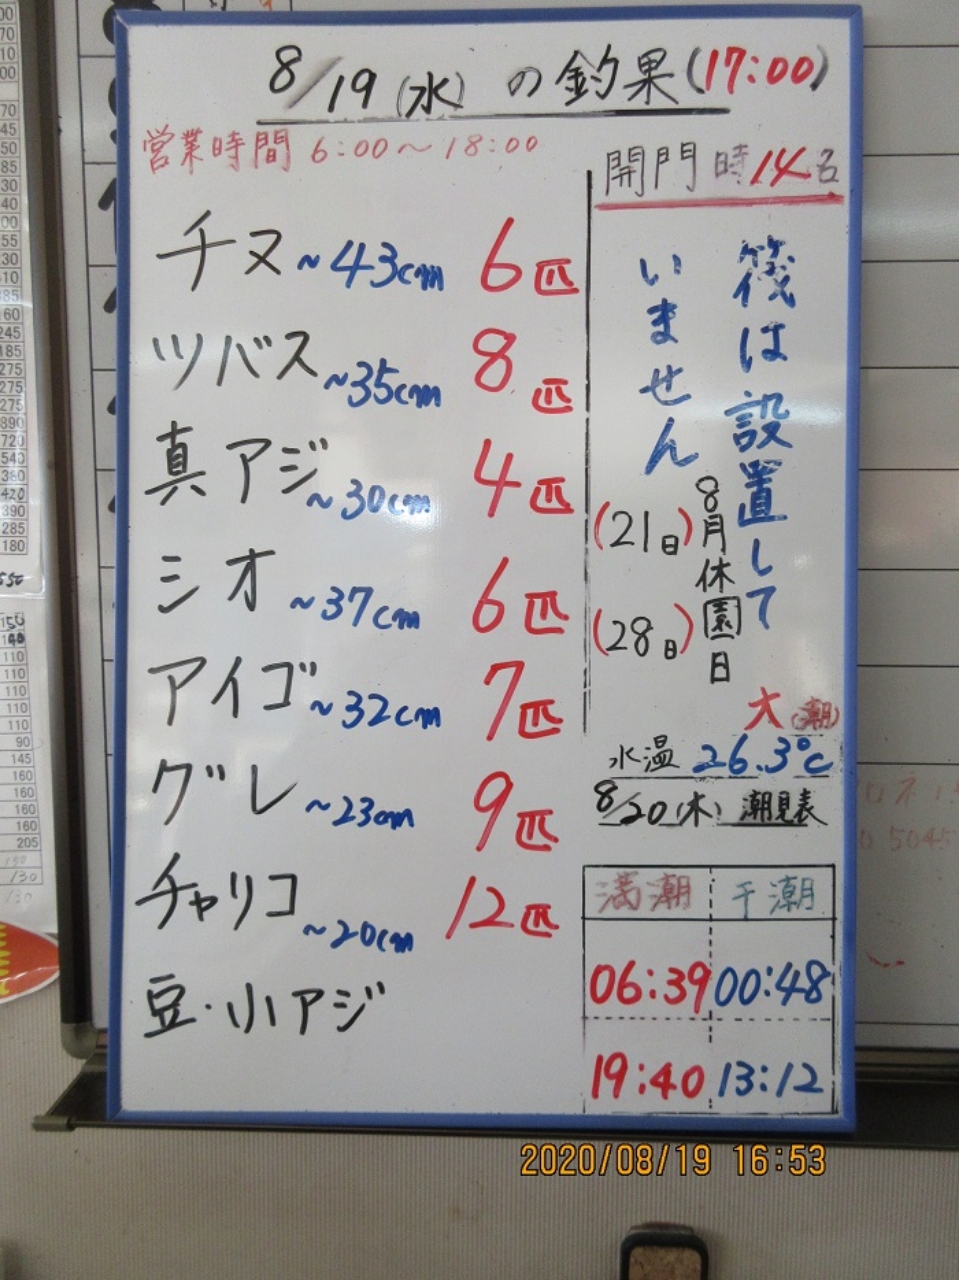 8/19(水)の釣果(17:00)
営業時間 6:00〜18:00
チヌ ~43cm 6匹
ツバス ~35cm 8匹
真アジ ~30cm 4匹
シオ ~37cm 6匹
アイゴ ~32cm 7匹
グレ ~23cm 9匹
チャリコ ~20cm 12匹
豆・小アジ
開門時14名
筏は設置して
いません
8月休園日
(21日)
(28日)
大(潮)
水温 26.3℃
8/20(木) 潮見表
満潮 干潮
06:39 00:48
19:40 13:12
2020/08/19 16:53